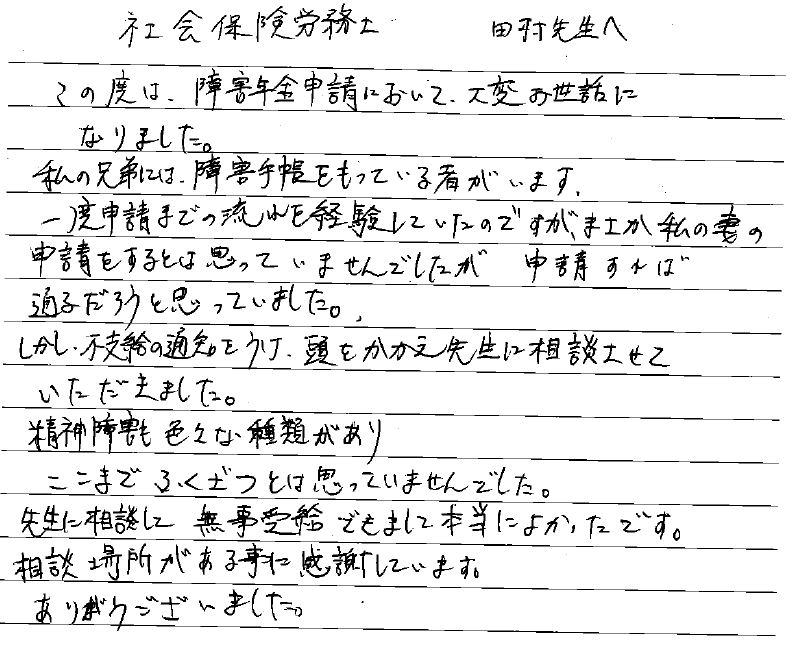 社会保険労務士　田村先生へ
この度は、障害年金申請において、大変お世話に
なりました。
私の兄弟には、障害手帳をもっている者がいます。
一度申請までの流れを経験していたのですが、まさか私の妻の
申請をするとは思っていませんでしたが　申請すれば
通るだろうと思っていました。
しかし、不支給の通知をうけ、頭をかかえ先生に相談させて
いただきました。
精神障害も色々な種類があり
ここまでふくざつとは思っていませんでした。
先生に相談して　無事受給できまして本当によかったです。
相談場所がある事に感謝しています。
ありがとうございました。